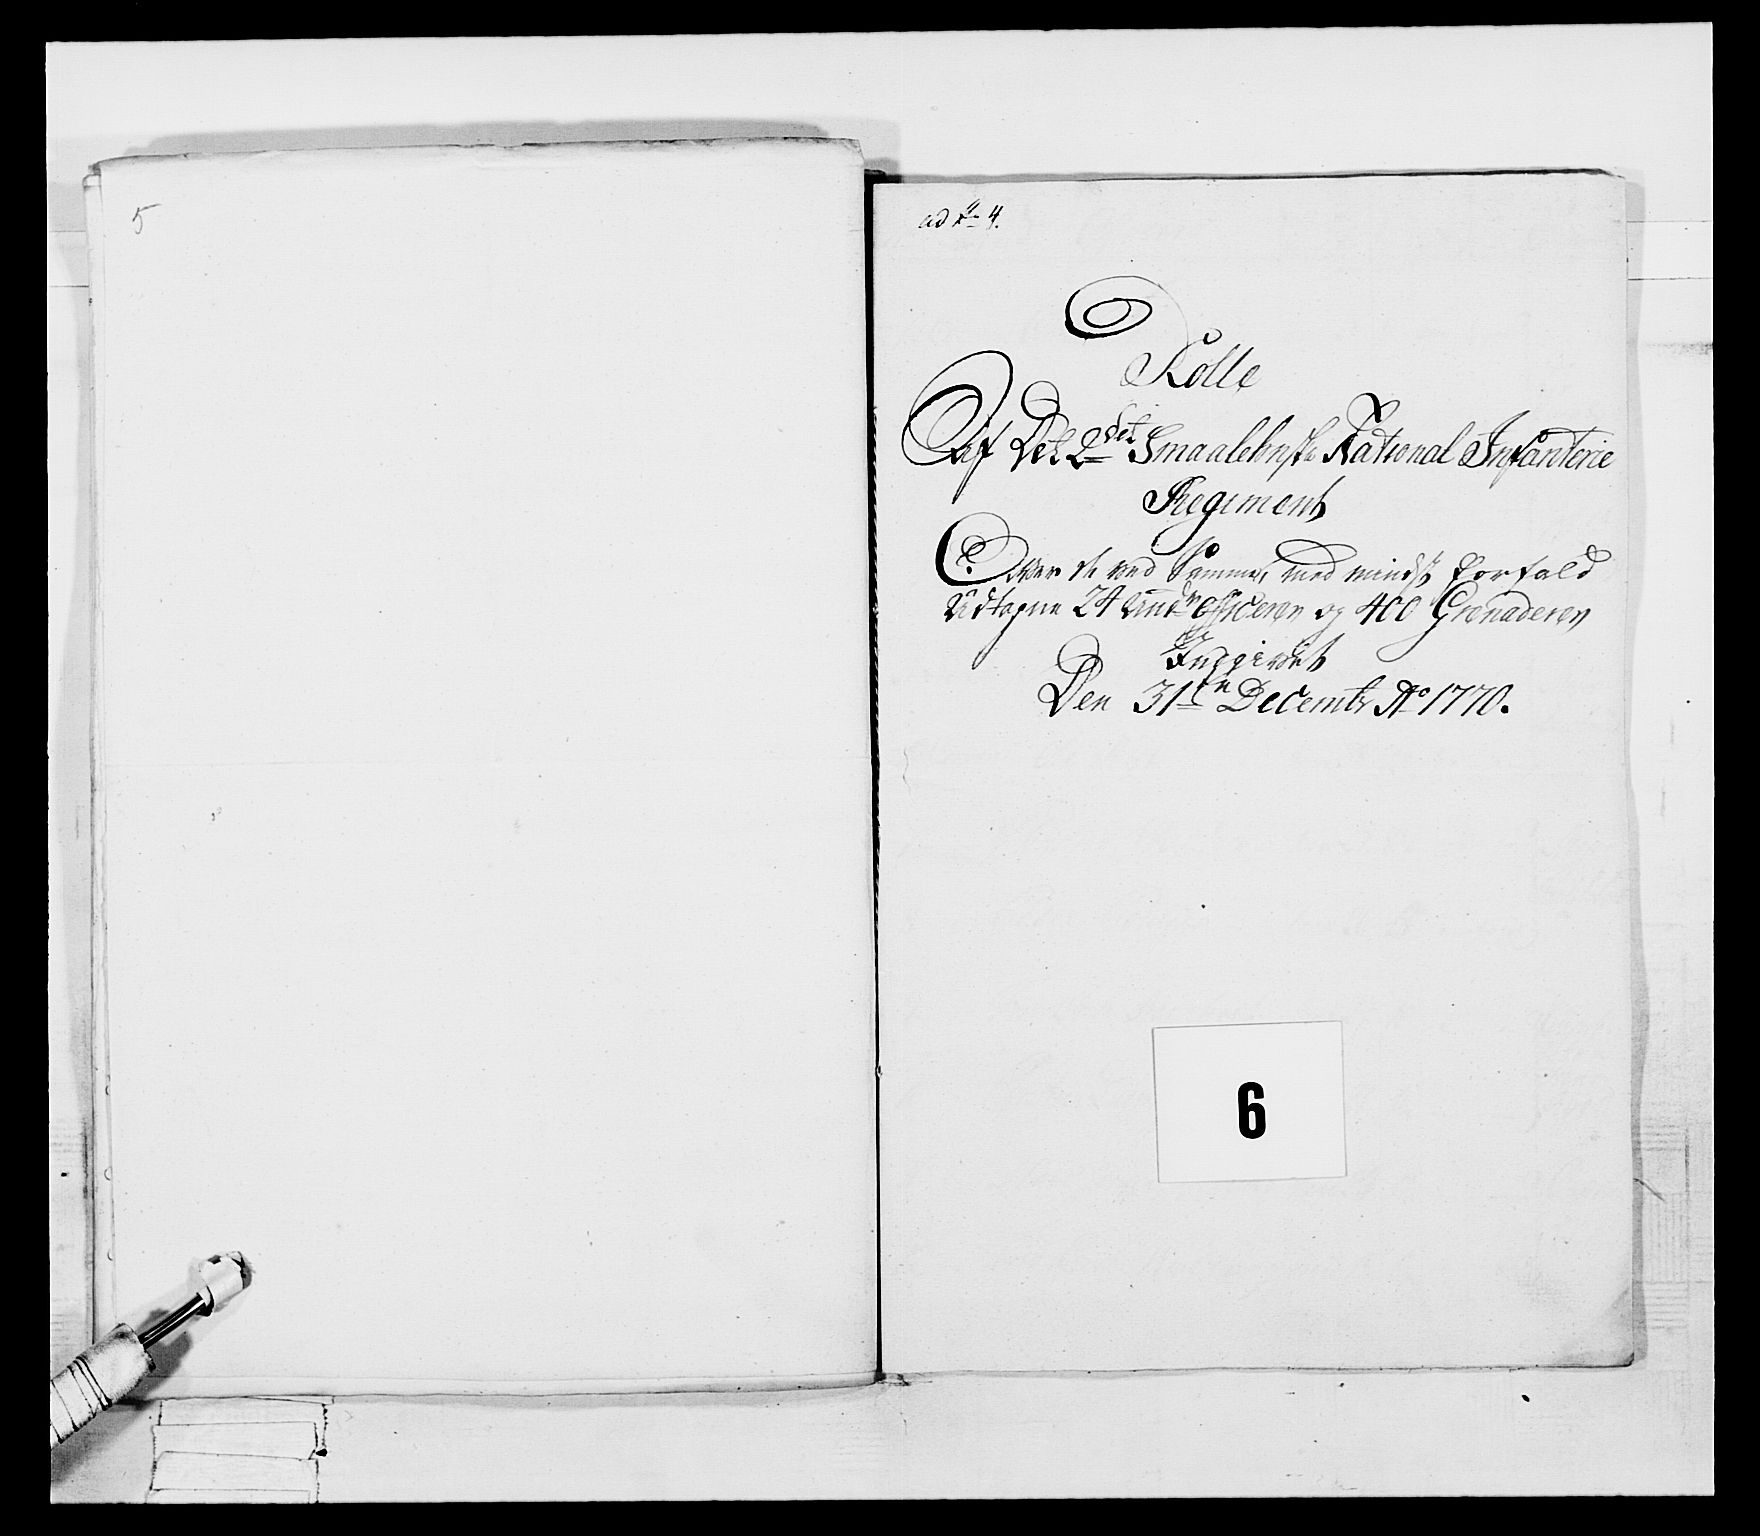 5
ad No 4.
Rolle
Af Det 2det Smaalehnske National Infanterie
Regiment
Over de ved Samme, med mindst forfald
Udtagne 24 Undr officerer og 400 Grenaderer
Indgivet
Den 31te Decembr Ao 1770.
6